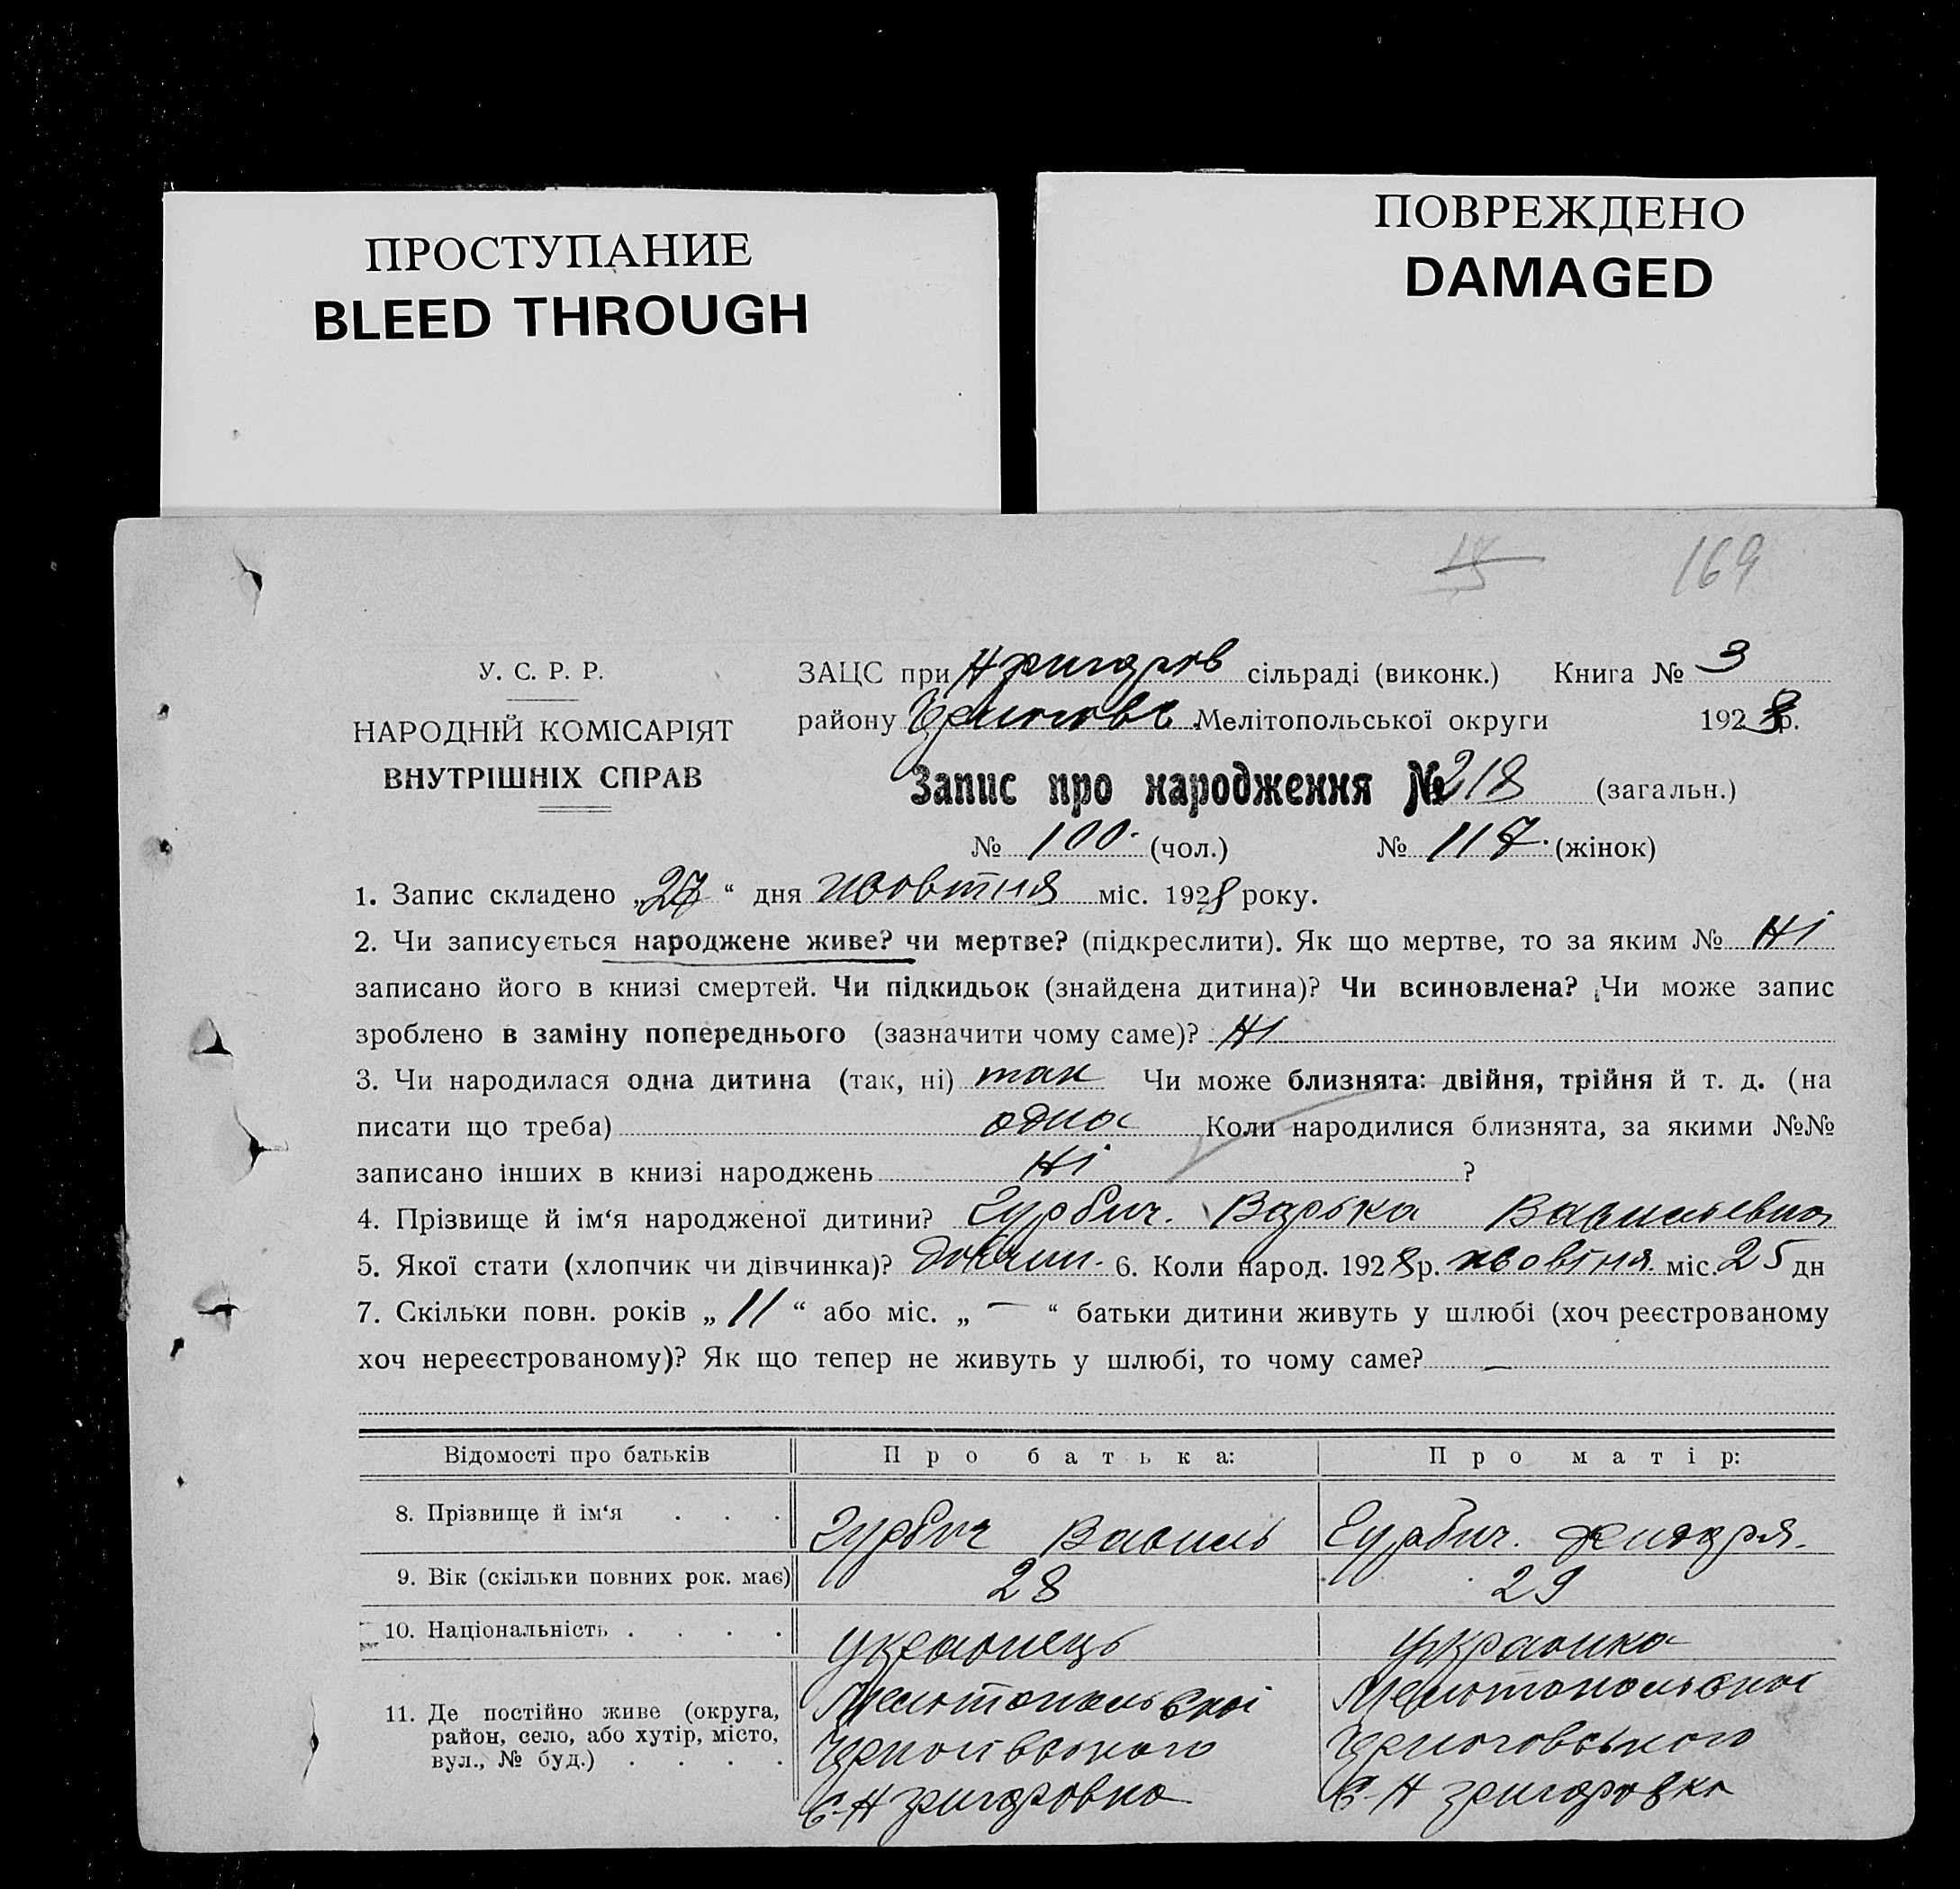 ПРОСТУПАНИЕ
BLEED THROUGH
ПОВРЕЖДЕНО
DAMAGED
15
169
У. С. Р. Р.
НАРОДНІЙ КОМІСАРІЯТ
ВНУТРІШНІХ СПРАВ
ЗАЦС при Н григоров сільраді (виконк.) Книга № 3
району Мелітопольської округи 1928 р.
Запис про народження № 218 (загальн.)
№ 100. (чол.) № 117. (жінок)
1. Запис складено „27“ дня жовтня міс. 1928 року.
2. Чи записується народжене живе? чи мертве? (підкреслити). Як що мертве, то за яким № Ні
записано його в книзі смертей. Чи підкидьок (знайдена дитина)? Чи всиновлена? Чи може запис
зроблено в заміну попереднього (зазначити чому саме)? Ні
3. Чи народилася одна дитина (так, ні) так Чи може близнята: двійня, трійня й т. д. (на
писати що треба) одна Коли народилися близнята, за якими №№
записано інших в книзі народжень Ні ?
4. Прізвище й ім‘я народженої дитини? Гурбич. Варька Васильевна
5. Якої стати (хлопчик чи дівчинка)? 6. Коли народ. 1928 р. жовтня міс. 25 дн
7. Скільки повн. років „ 11 “ або міс. „ — “ батьки дитини живуть у шлюбі (хоч реєстрованому
хоч нереєстрованому)? Як що тепер не живуть у шлюбі, то чому саме? —
Відомості про батьків Про батька: Про матір:
8. Прізвище й ім‘я . . . Гурбич Василь Гурбич.
9. Вік (скільки повних рок. має) 28 29
10. Національність . . . . Українець Українка
11. Де постійно живе (округа, район, село, або хутір, місто, вул., № буд.) . . . .
Мелітопольської
С-Н григоровка
Мелітопольської
С-Н григоровка